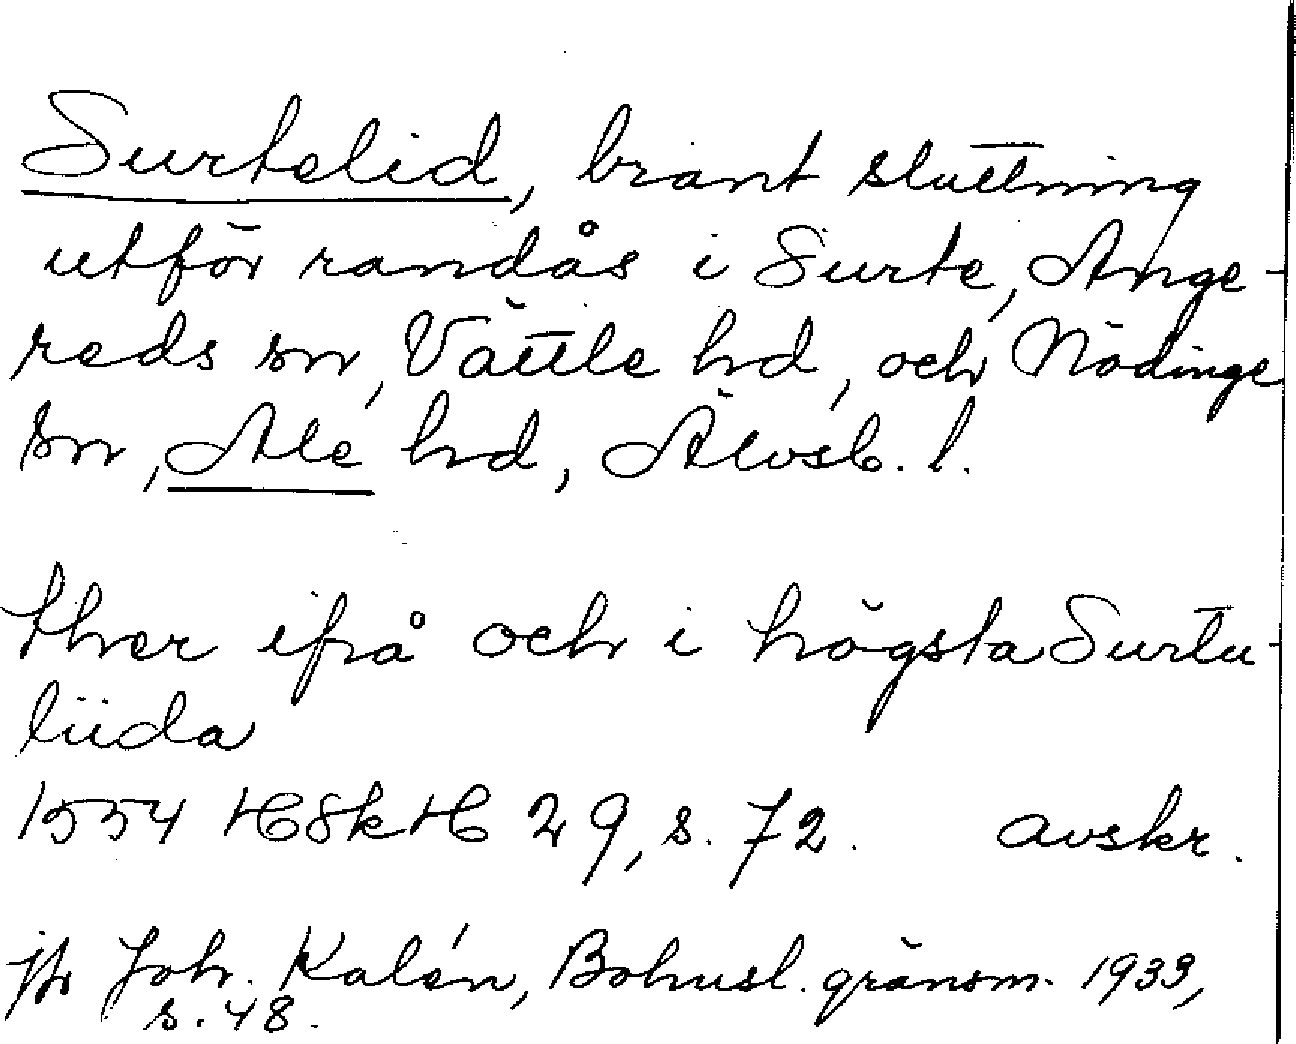 Surtelid, brant sluttning
utför randås i Surte, Ange-
reds sn, Vättle hd, och Nödinge
sn, Ale hd, Älvsb. l.
thær ifrå och i högsta Surtu-
liida
1554 HSkH 29, s. 72. avskr.
jfr Joh. Kalén, Bohusl. gränsm. 1933,
s. 48.